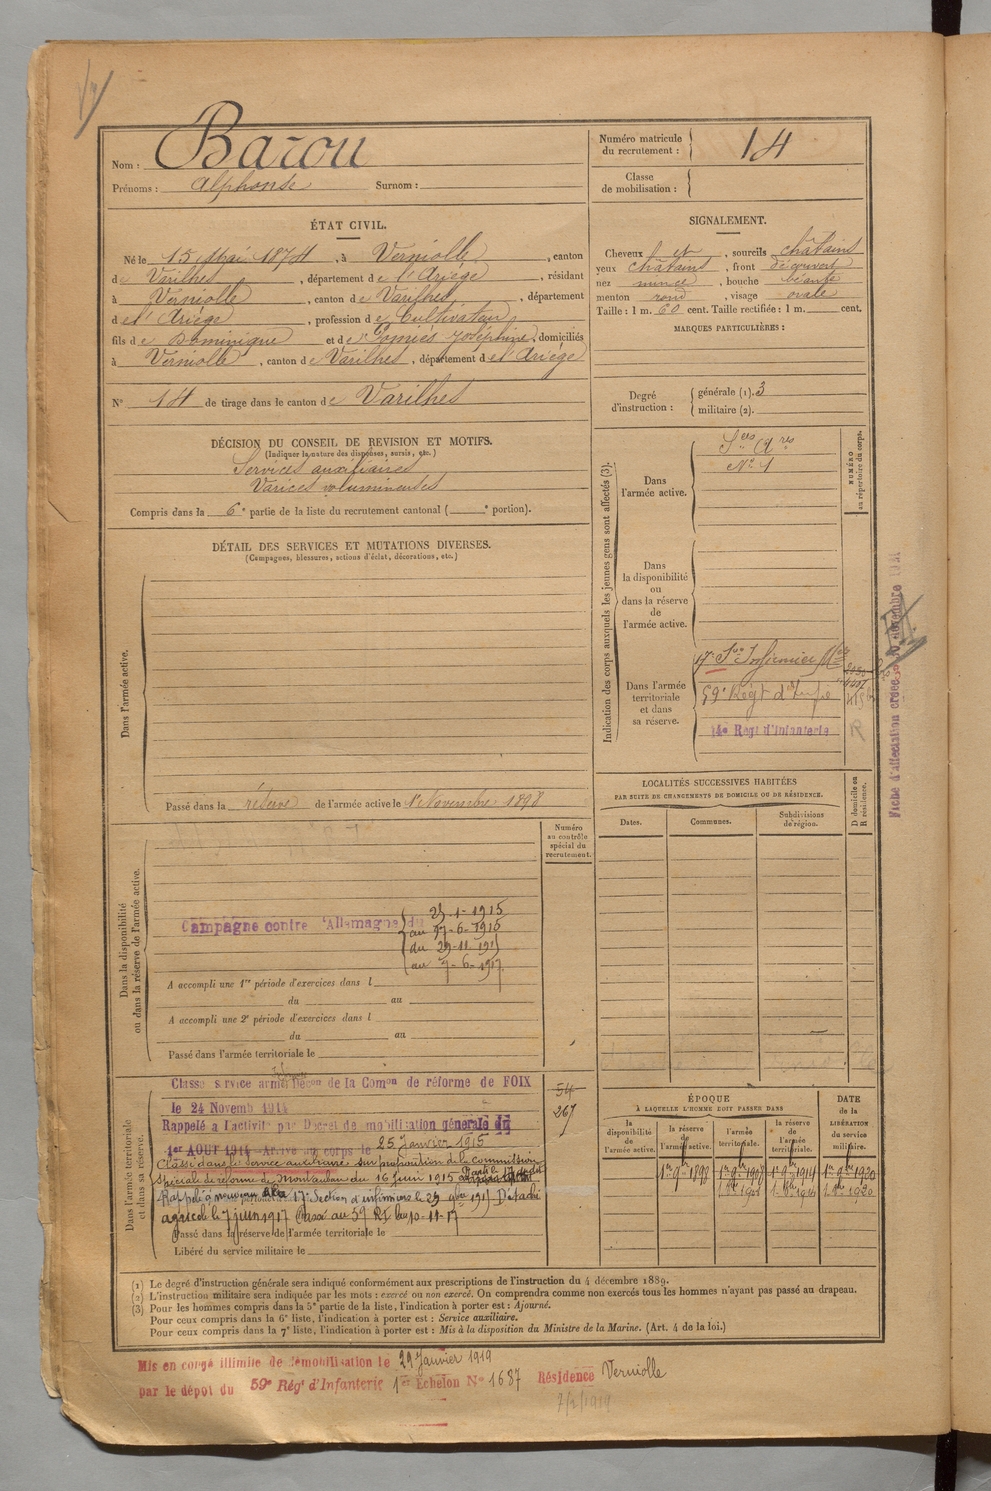 Nom : Barou
Prénoms : Alphonse Surnom :
Numéro matricule du recrutement : 14
Classe de mobilisation :
ÉTAT CIVIL.
Né le 15 Mai 1874, à Verniolle, canton
de Varilhes, département de l'Ariège, résidant
à Verniolle, canton de Varilhes, département
de l'Ariège, profession de Cultivateur
fils de Dominique et de Gomiès Joséphine, domiciliés
à Verniolle, canton de Varilhes, département de l'Ariège
N° 14 de tirage dans le canton de Varilhes
SIGNALEMENT.
Cheveux et, sourcils châtains
yeux châtains, front découvert
nez mince, bouche béante
menton rond, visage ovale
Taille : 1 m. 60 cent. Taille rectifiée : 1 m. cent.
MARQUES PARTICULIÈRES :
Degré d'instruction : générale (1). 3
militaire (2).
DÉCISION DU CONSEIL DE REVISION ET MOTIFS.
(Indiquer la nature des dispenses, sursis, etc.)
Services auxiliaires
Varices volumineuses
Compris dans la 6e partie de la liste du recrutement cantonal ( e portion).
DÉTAIL DES SERVICES ET MUTATIONS DIVERSES.
(Campagnes, blessures, actions d'éclat, décorations, etc.)
Dans l'armée active.
Passé dans la réserve de l'armée active le 1er Novembre 1898
Indication des corps auxquels les jeunes gens sont affectés (3).
NUMÉRO au répertoire du corps.
Dans l'armée active.
Sces Ares
N° 1
Dans la disponibilité ou dans la réserve de l'armée active.
Dans l'armée territoriale et dans sa réserve.
17e Son Infirmiers Mres
59e Régt d'Infie
14e Régt d'Infanterie
R
Fiche d'affectation créée
LOCALITÉS SUCCESSIVES HABITÉES
PAR SUITE DE CHANGEMENTS DE DOMICILE OU DE RÉSIDENCE.
Dates. Communes. Subdivisions de région.
D domicile ou R résidence.
Dans la disponibilité ou dans la réserve de l'armée active.
Numéro au contrôle spécial du recrutement.
Campagne contre l'Allemagne du 25-1-1915
au 17-6-1915
du 29-11-1915
au 7-6-1917
A accompli une 1re période d'exercices dans l
du au
A accompli une 2e période d'exercices dans l
du au
Passé dans l'armée territoriale le
Dans l'armée territoriale et dans sa réserve.
Classé service armé Décon de la Comon de réforme de FOIX
le 24 Novemb 1914
Rappelé à l'activité par Décret de mobilisation générale du
1er AOUT 1914 Arrivé au corps le 25 Janvier 1915
Classé dans le service auxiliaire sur proposition de la Commission
spéciale de réforme de Montauban du 16 juin 1915 Parti le 17 dudit
Rappelé à nouveau à la 17e Section d'infirmiers le 29 9bre 1915 Détaché
agricole le 7 juin 1917 Passé au 59 RI le 10-11-17
Passé dans la réserve de l'armée territoriale le
Libéré du service militaire le
54
267
ÉPOQUE
À LAQUELLE L'HOMME DOIT PASSER DANS
DATE de la LIBÉRATION du service militaire.
la disponibilité de l'armée active. la réserve de l'armée active. l'armée territoriale. la réserve de l'armée territoriale.
1er 9bre 1898 1er 9bre 1908 1er 9bre 1914 1er 9bre 1920
(1) Le degré d'instruction générale sera indiqué conformément aux prescriptions de l'instruction du 4 décembre 1889.
(2) L'instruction militaire sera indiquée par les mots : exercé ou non exercé. On comprendra comme non exercés tous les hommes n'ayant pas passé au drapeau.
(3) Pour les hommes compris dans la 5e partie de la liste, l'indication à porter est : Ajourné.
Pour ceux compris dans la 6e liste, l'indication à porter est : Service auxiliaire.
Pour ceux compris dans la 7e liste, l'indication à porter est : Mis à la disposition du Ministre de la Marine. (Art. 4 de la loi.)
Mis en congé illimité de démobilisation le 29 Janvier 1919
par le dépôt du 59e Régt d'Infanterie 1er Echelon N° 1687 Résidence Verniolle
7/2/1919